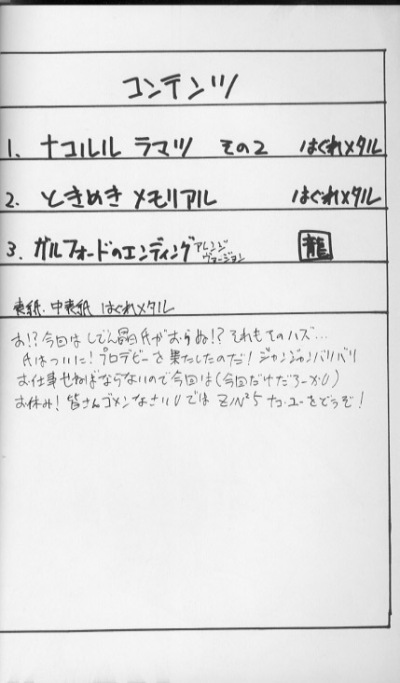 コンテンツ
1. ナコルル ラマツ その2 はぐれメタル
2. ときめき メモリアル はぐれメタル
3. ガルフォードのエンディング アレンジヴァージョン 龍
表紙・中表紙 はぐれメタル
お!? 今回はしでん 氏がおらぬ!? それもそのハズ…
氏はついに! プロデビーを果たしたのだ! ジャンジャンバリバリ
お仕事せねばならないので今回は(今回だけだろーが)
お休み! 皆さんゴメンなさい では をどうぞ!